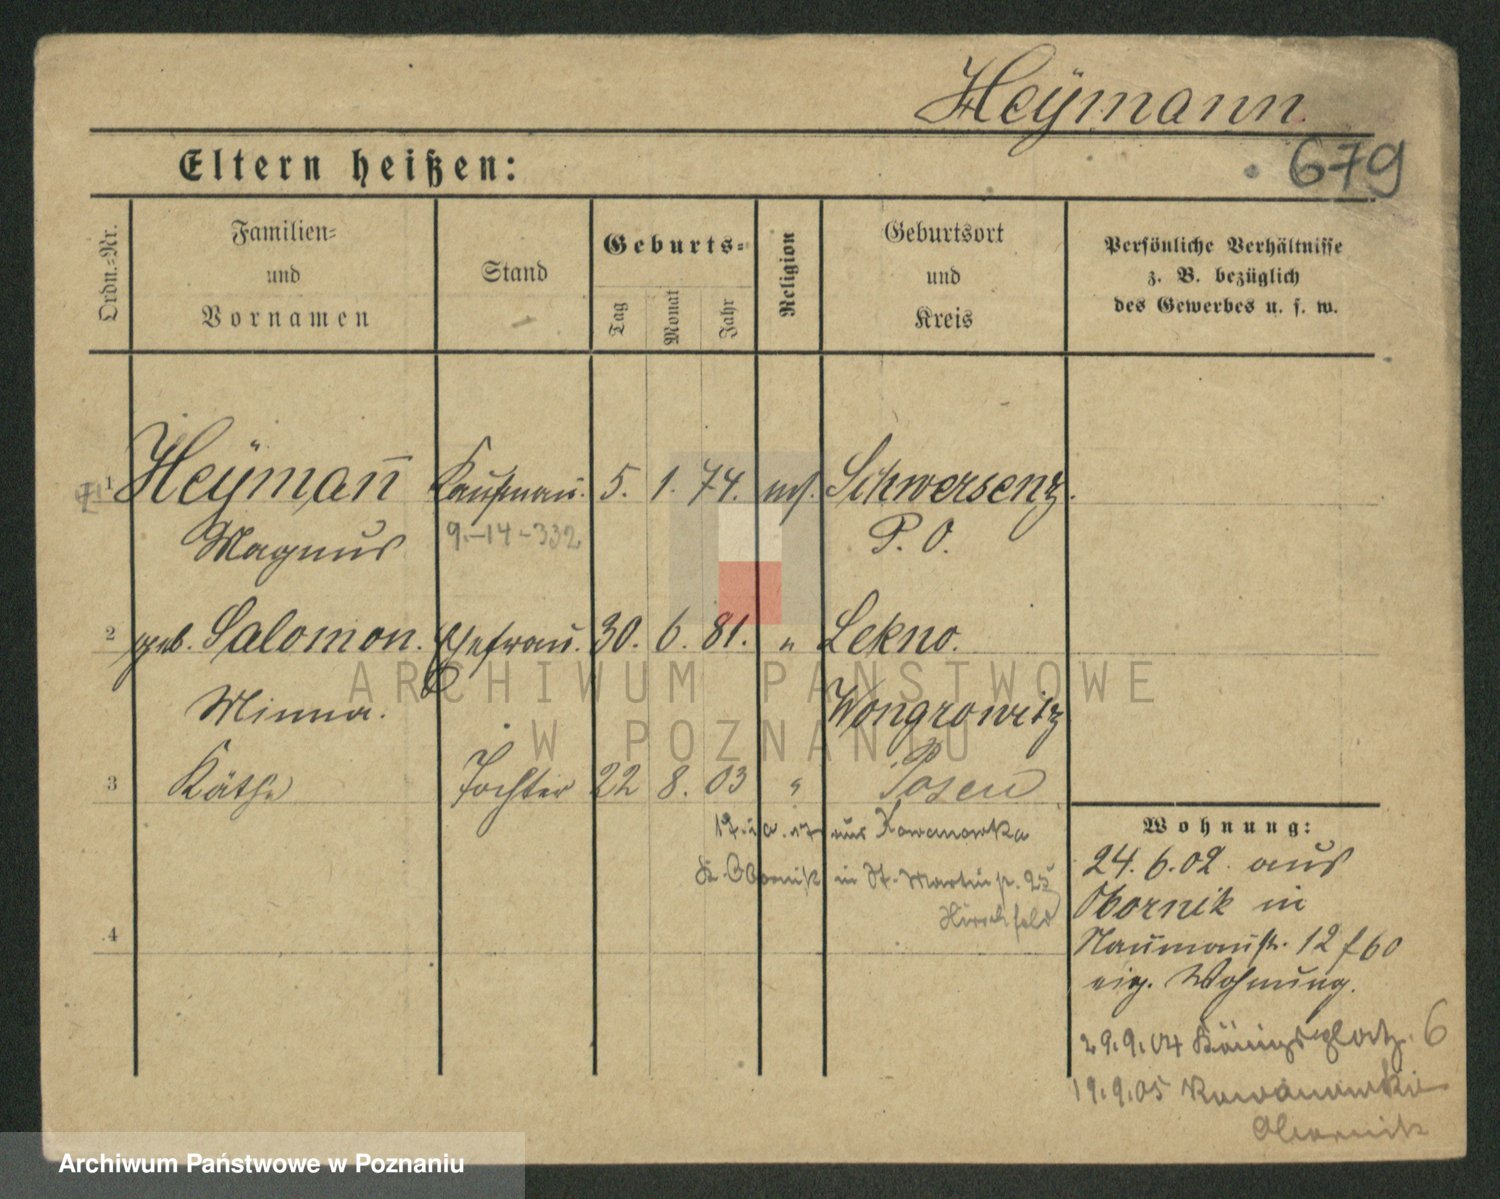 Heÿmann.
679
Eltern heißen:
Ordn.-Nr.
Familien-
und
Vornamen
Stand
Geburts-
Tag
Monat
Jahr
Religion
Geburtsort
und
Kreis
Persönliche Verhältnisse
z. B. bezüglich
des Gewerbes u. s. w.
1 Heÿman̄ Kaufman̄. 5. 1. 74. mos. Schwersenz.
Magnus 9.-14-332 P. O.
2 geb. Salomon. Ehefrau. 30. 6. 81. " Lekno.
Minna. Wongrowitz
3 Käthe Tochter 22 8. 03 " Posen
aus Kowanowko
K. Obornik in St. Martinstr. 25
Hirschfeld
4
Wohnung:
24. 6. 02 aus
Obornik in
Naumannstr. 12 f 60
eig. Wohnung.
29.9.04 Königsplatz 6
19.9.05 Kowanowko
Obornik
ARCHIWUM PAŃSTWOWE
W POZNANIU
Archiwum Państwowe w Poznaniu